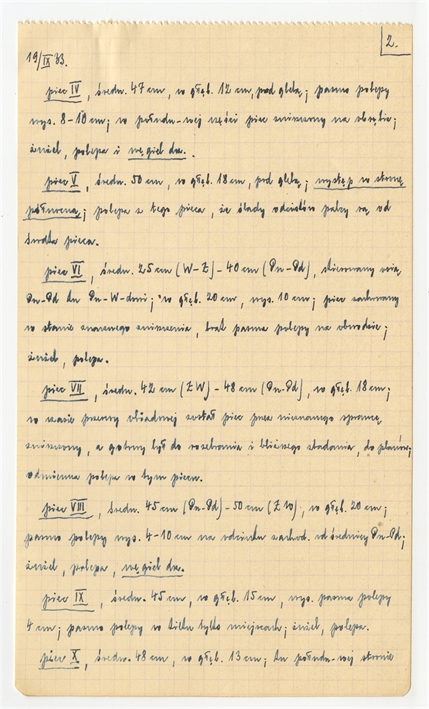 2.
19/IX 83.
piec IV, średn. 47 cm, w głęb. 12 cm, pod glebą; pasmo polepy
wys. 8-10 cm; w połudn.-wej części piec zniszczony na obrębie;
żużel, polepa i węgiel drz.
piec V, średn. 50 cm, w głęb. 18 cm, pod glebą; występ w stronę
północną; polepa z tego pieca, że ślady odcisków palcy są od
środka pieca.
piec VI, średn. 25 cm (W-Z) - 40 cm (Pn-Pd), skierowany osią
Pn-Pd ku Pn-W-dowi; w głęb. 20 cm, wys. 10 cm; piec zachowany
w stanie znacznego zniszczenia, brak pasma polepy na obwodzie;
żużel, polepa.
piec VII, średn. 42 cm (ZW) - 48 cm (Pn-Pd), w głęb. 18 cm;
w czasie przerwy obiadowej został piec przez nieznanego sprawcę
zniszczony, a gotowy był do rozebrania i bliższego zbadania, do planów;
odmienna polepa w tym piecu.
piec VIII, średn. 45 cm (Pn-Pd) - 50 cm (ZW), w głęb. 20 cm;
pasmo polepy wys. 4-10 cm na odcinku zachod. od średnicy Pn-Pd;
żużel, polepa, węgiel drz.
piec IX, średn. 45 cm, w głęb. 15 cm, wys. pasma polepy
4 cm; pasmo polepy w kilku tylko miejscach; żużel, polepa.
piec X, średn. 48 cm, w głęb. 13 cm; ku połudn.-wej stronie